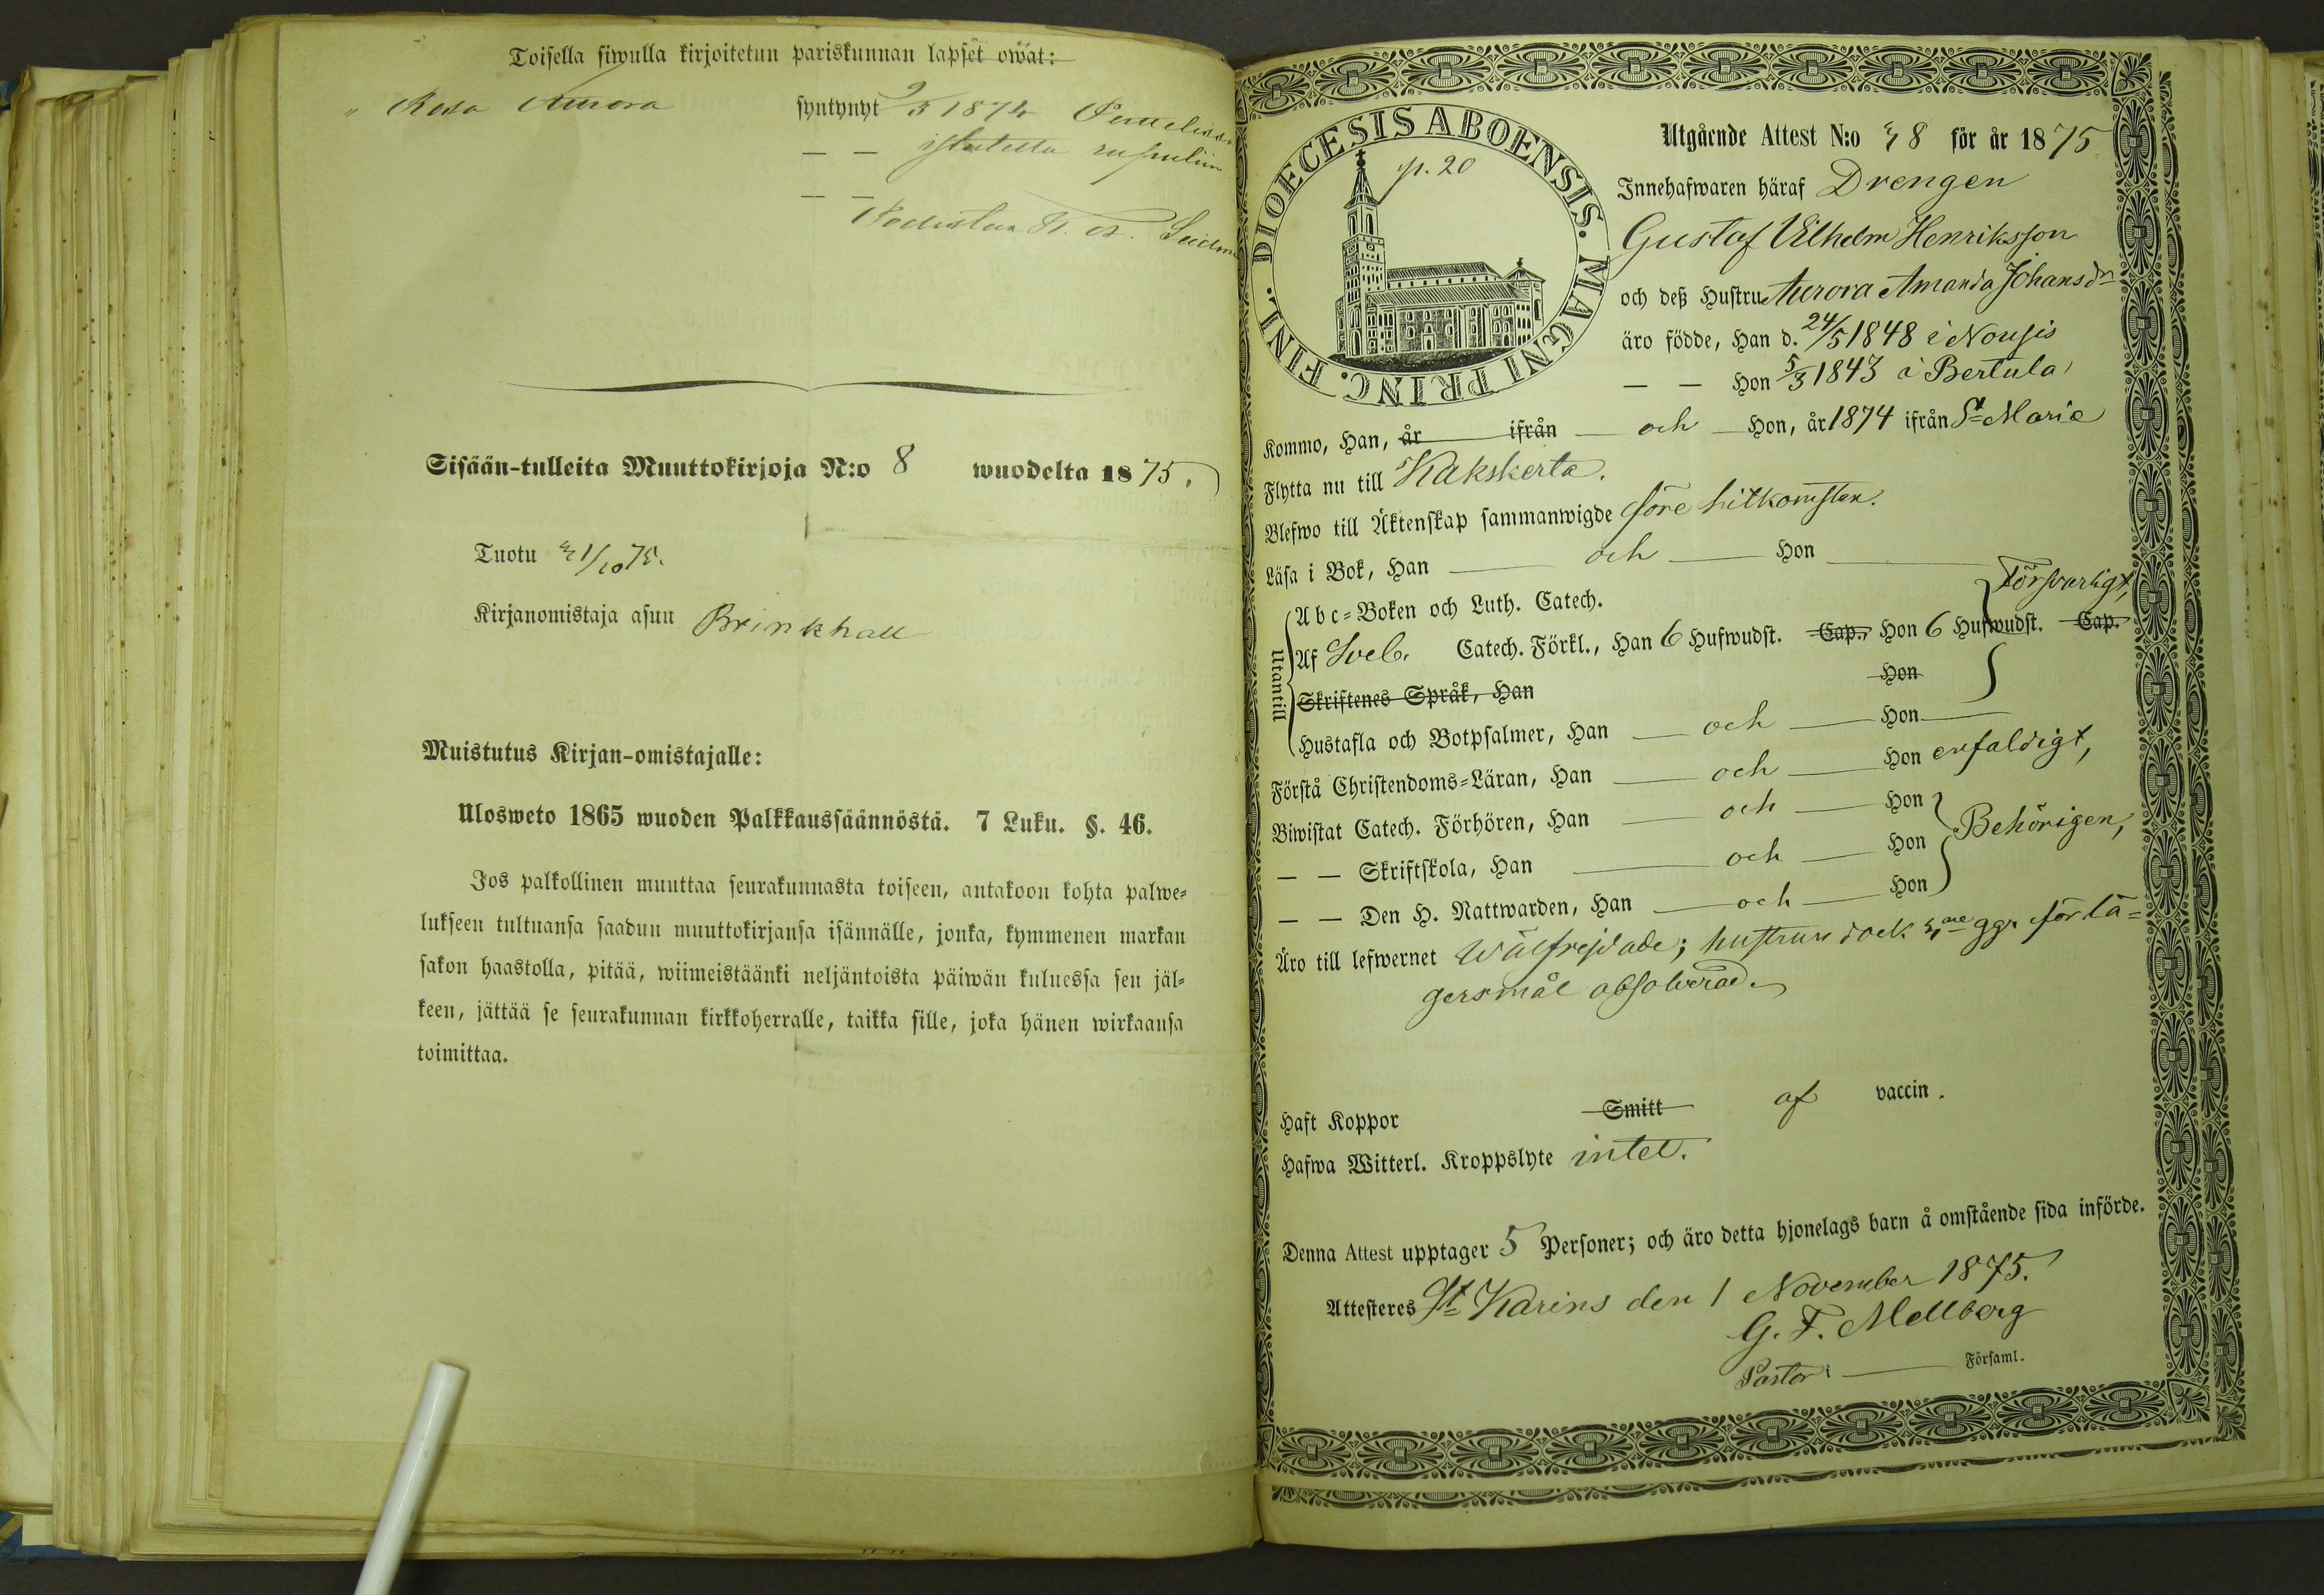 Toisella siwulla kirjoitetun pariskunnan lapset owat:
" Rosa Aurora syntynyt 9/3 1874
— —
— —
Sisään-tulleita Muuttokirjoja N:o 8 wuodelta 1875.
Tuotu 31/10 75.
Kirjanomistaja asuu Brinkhall
Muistutus Kirjan-omistajalle:
Ulosweto 1865 wuoden Palkkaussäännöstä. 7 Luku. §. 46.
Jos palkollinen muuttaa seurakunnasta toiseen, antakoon kohta palwe-
lukseen tultuansa saadun muuttokirjansa isännälle, jonka, kymmenen markan
sakon haastolla, pitää, wiimeistäänki neljäntoista päiwän kuluessa sen jäl-
keen, jättää se seurakunnan kirkkoherralle, taikka sille, joka hänen wirkaansa
toimittaa.
DIOECESIS ABOENSIS. MAGNI PRINC. FINL.
p. 20
Utgående Attest N:o 38 för år 1875
Innehafwaren häraf Drengen
Gustaf Vilhelm Henriksson
och deß Hustru Aurora Amanda Johansdr
äro födde, Han d. 24/5 1848 i Nousis
— — Hon 5/3 1843 i Bertula
Kommo, Han, år ifrån — och — Hon, år 1874 ifrån St Marie
Flytta nu till Kakskerta.
Blefwo till Äktenskap sammanwigde före hitkomsten.
Läsa i Bok, Han — och — Hon — Försvarligt,
Utantill
Abc-Boken och Luth. Catech.
Af Sveb. Catech. Förkl., Han 6 Hufwudst. Cap., Hon 6 Hufwudst. Cap.
Skriftenes Språk, Han Hon
Hustafla och Botpsalmer, Han — och — Hon —
Förstå Christendoms-Läran, Han — och — Hon enfaldigt,
Biwistat Catech. Förhören, Han — och — Hon
— — Skriftskola, Han — och — Hon Behörigen,
— — Den H. Nattwarden, Han — och — Hon
Äro till lefwernet wälfrejdade; hustrun dock ggr för lä-
gersmål absolverad.
Haft Koppor Smitt af vaccin.
Hafwa Witterl. Kroppslyte intet.
Denna Attest upptager 5 Personer; och äro detta hjonelags barn å omstående sida införde.
Attesteres St Karins den 1 November 1875.
G. F. Mellberg
Pastor i — Församl.